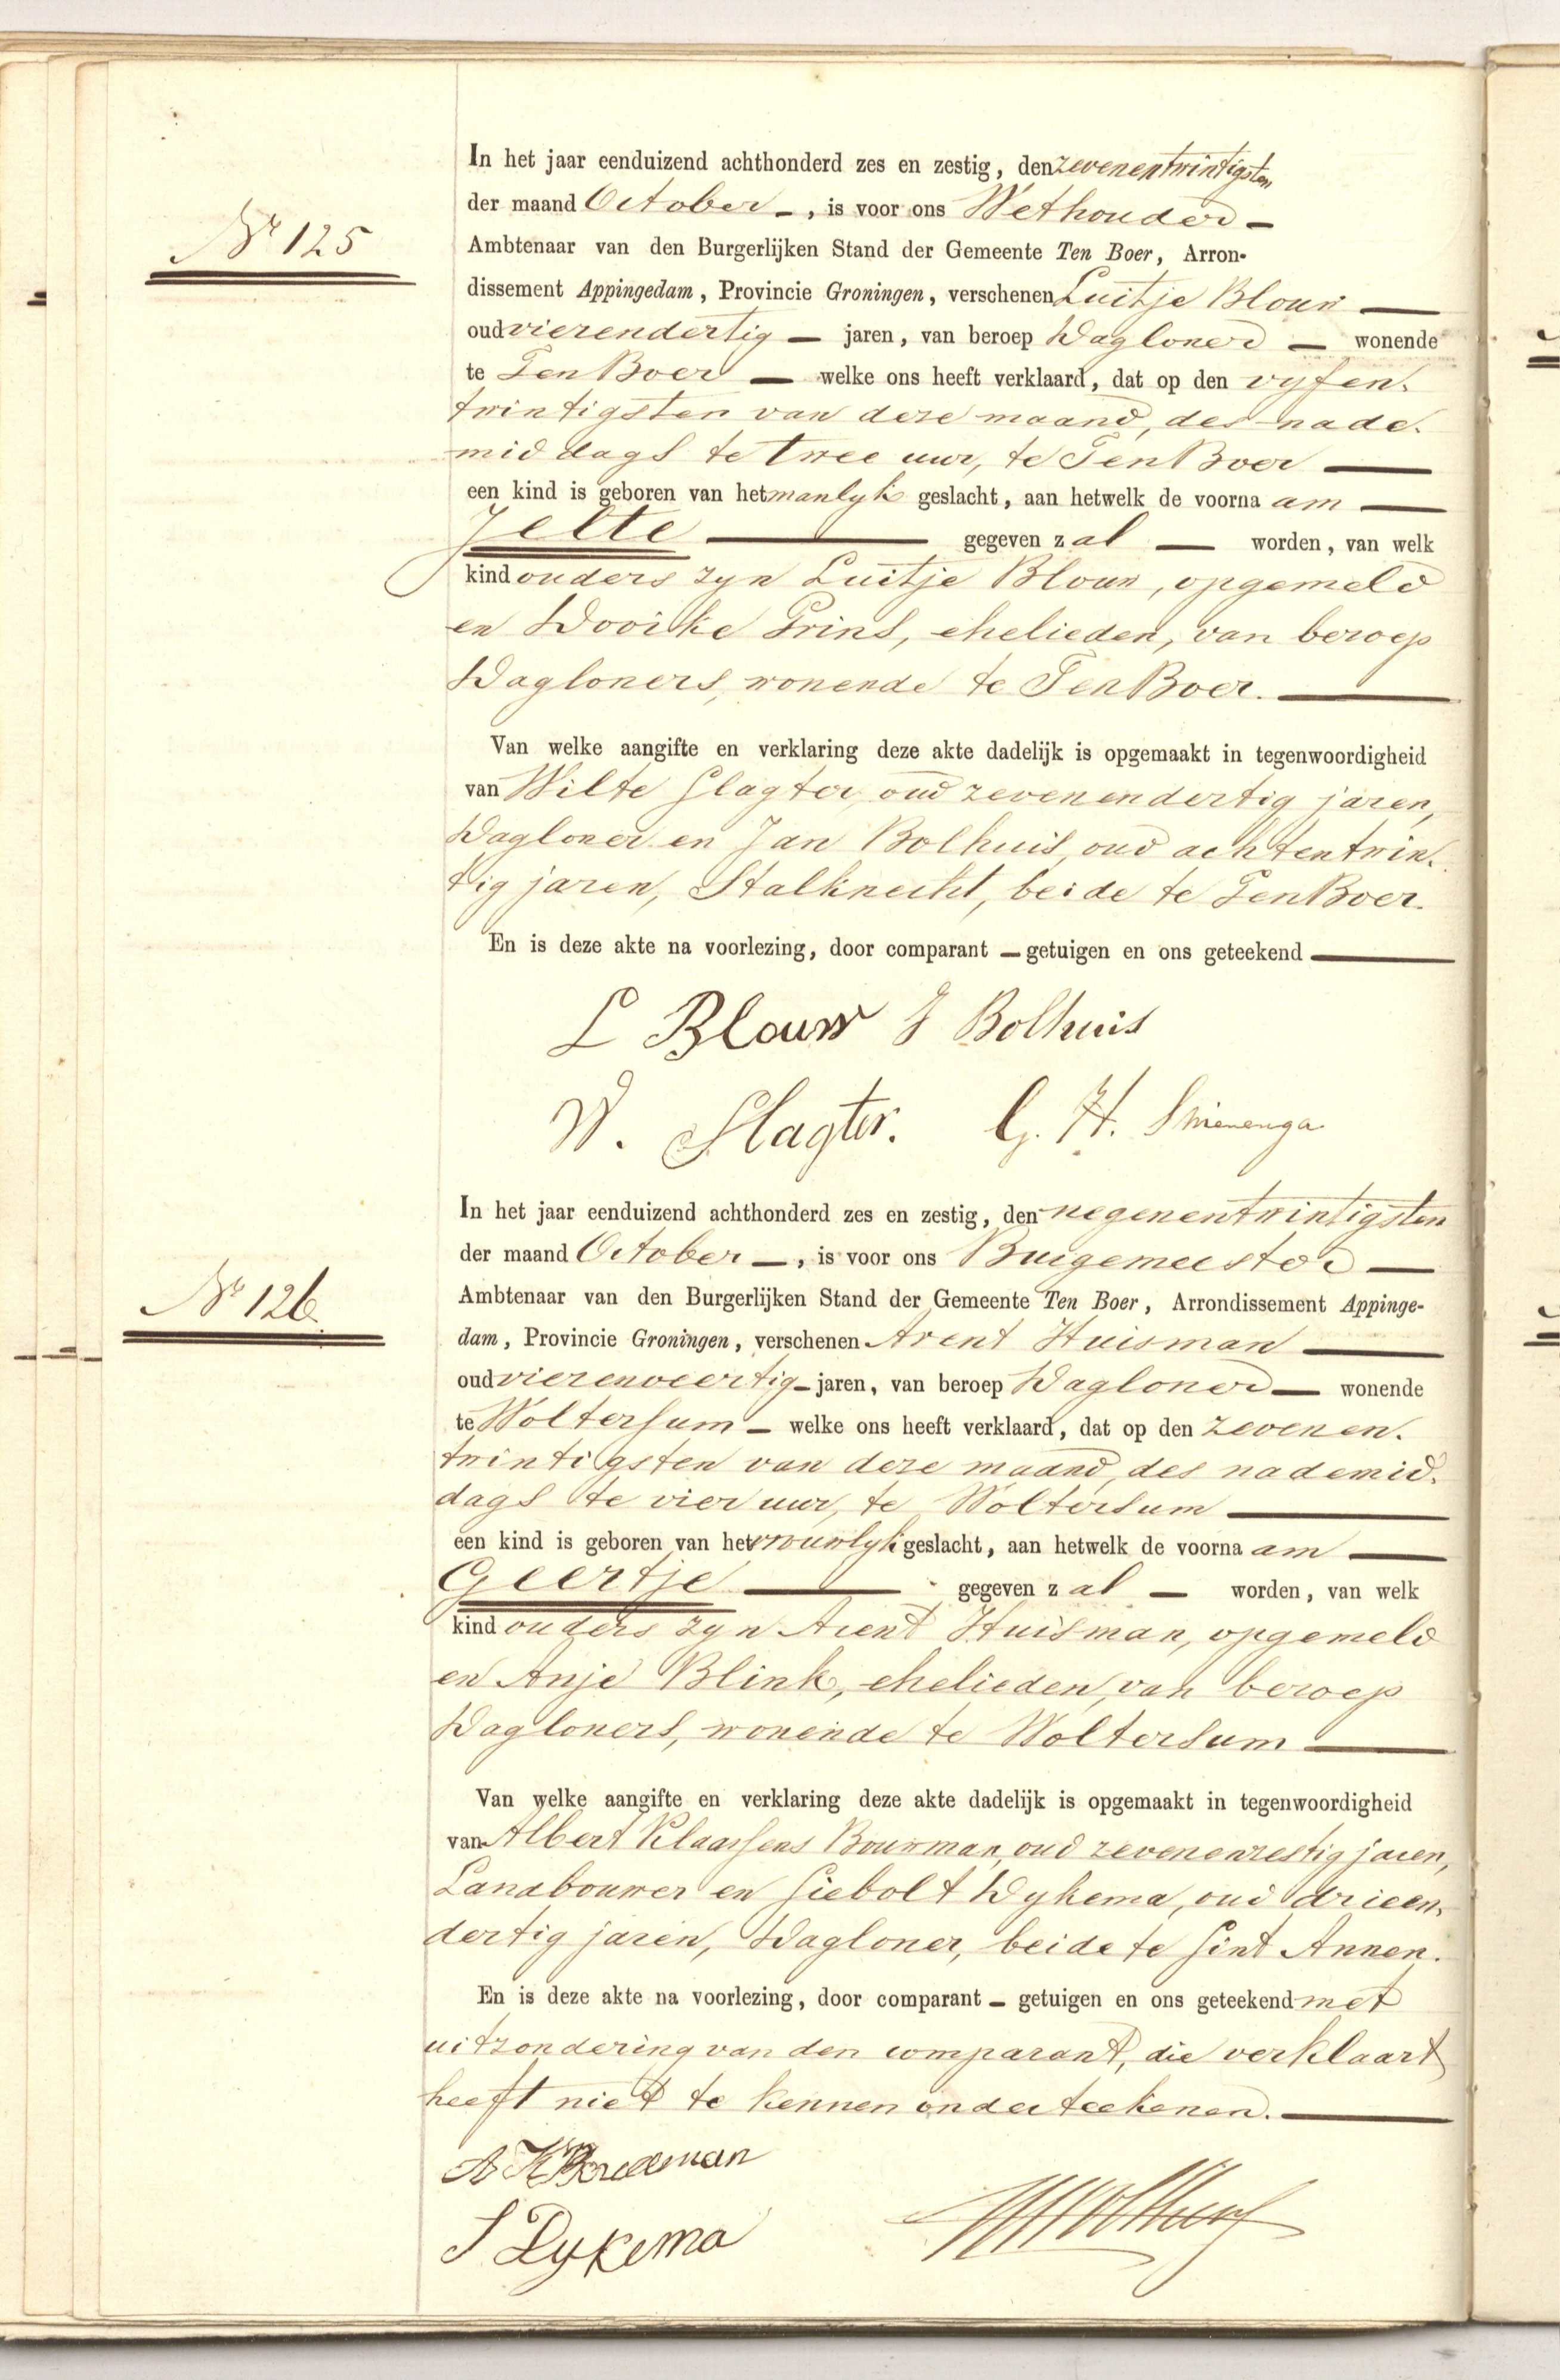 Nº 125
In het jaar eenduizend achthonderd zes en zestig, den zevenentwintigsten
der maand October —, is voor ons Wethouder —
Ambtenaar van den Burgerlijken Stand der Gemeente Ten Boer, Arron-
dissement Appingedam, Provincie Groningen, verschenen Luitje Blouw —
oud vierendertig — jaren, van beroep Dagloner — wonende
te Ten Boer — welke ons heeft verklaard, dat op den vyfen-
twintigsten van deze maand, des nade-
middags te twee uur, te Ten Boer —
een kind is geboren van het manlyk geslacht, aan hetwelk de voorna am —
Jelte — gegeven z al — worden, van welk
kind ouders zyn Luitje Blouw, opgemeld
en Dooike Prins, ehelieden, van beroep
Dagloners, wonende te Ten Boer. —
Van welke aangifte en verklaring deze akte dadelijk is opgemaakt in tegenwoordigheid
van Wilte Slagter, oud zevenendertig jaren,
Dagloner en Jan Bolhuis, oud achtentwin-
tig jaren, Stalknecht, beide te Ten Boer.
En is deze akte na voorlezing, door comparant — getuigen en ons geteekend —
L Blouw J Bolhuis
W. Slagter. G. H.
Nº 126
In het jaar eenduizend achthonderd zes en zestig, den negenentwintigsten
der maand October —, is voor ons Burgemeester —
Ambtenaar van den Burgerlijken Stand der Gemeente Ten Boer, Arrondissement Appinge-
dam, Provincie Groningen, verschenen Arent Huisman —
oud vierenveertig — jaren, van beroep Dagloner — wonende
te Woltersum — welke ons heeft verklaard, dat op den zevenen-
twintigsten van deze maand, des nademid-
dags te vier uur, te Woltersum —
een kind is geboren van het vrouwlyk geslacht, aan hetwelk de voorna am —
Geertje — gegeven z al — worden, van welk
kind ouders zyn Arent Huisman, opgemeld
en Anje Blink, ehelieden, van beroep
Dagloners, wonende te Woltersum —
Van welke aangifte en verklaring deze akte dadelijk is opgemaakt in tegenwoordigheid
van Albert Klaassens Bouwman, oud zevenenzestig jaren,
Landbouwer en Siebolt Dykema, oud drieen-
dertig jaren, Dagloner, beide te Sint Annen.
En is deze akte na voorlezing, door comparant — getuigen en ons geteekend met
uitzondering van den comparant, die verklaart
heeft niet te kennen onderteekenen. —
A K Bouwman
S Dykema